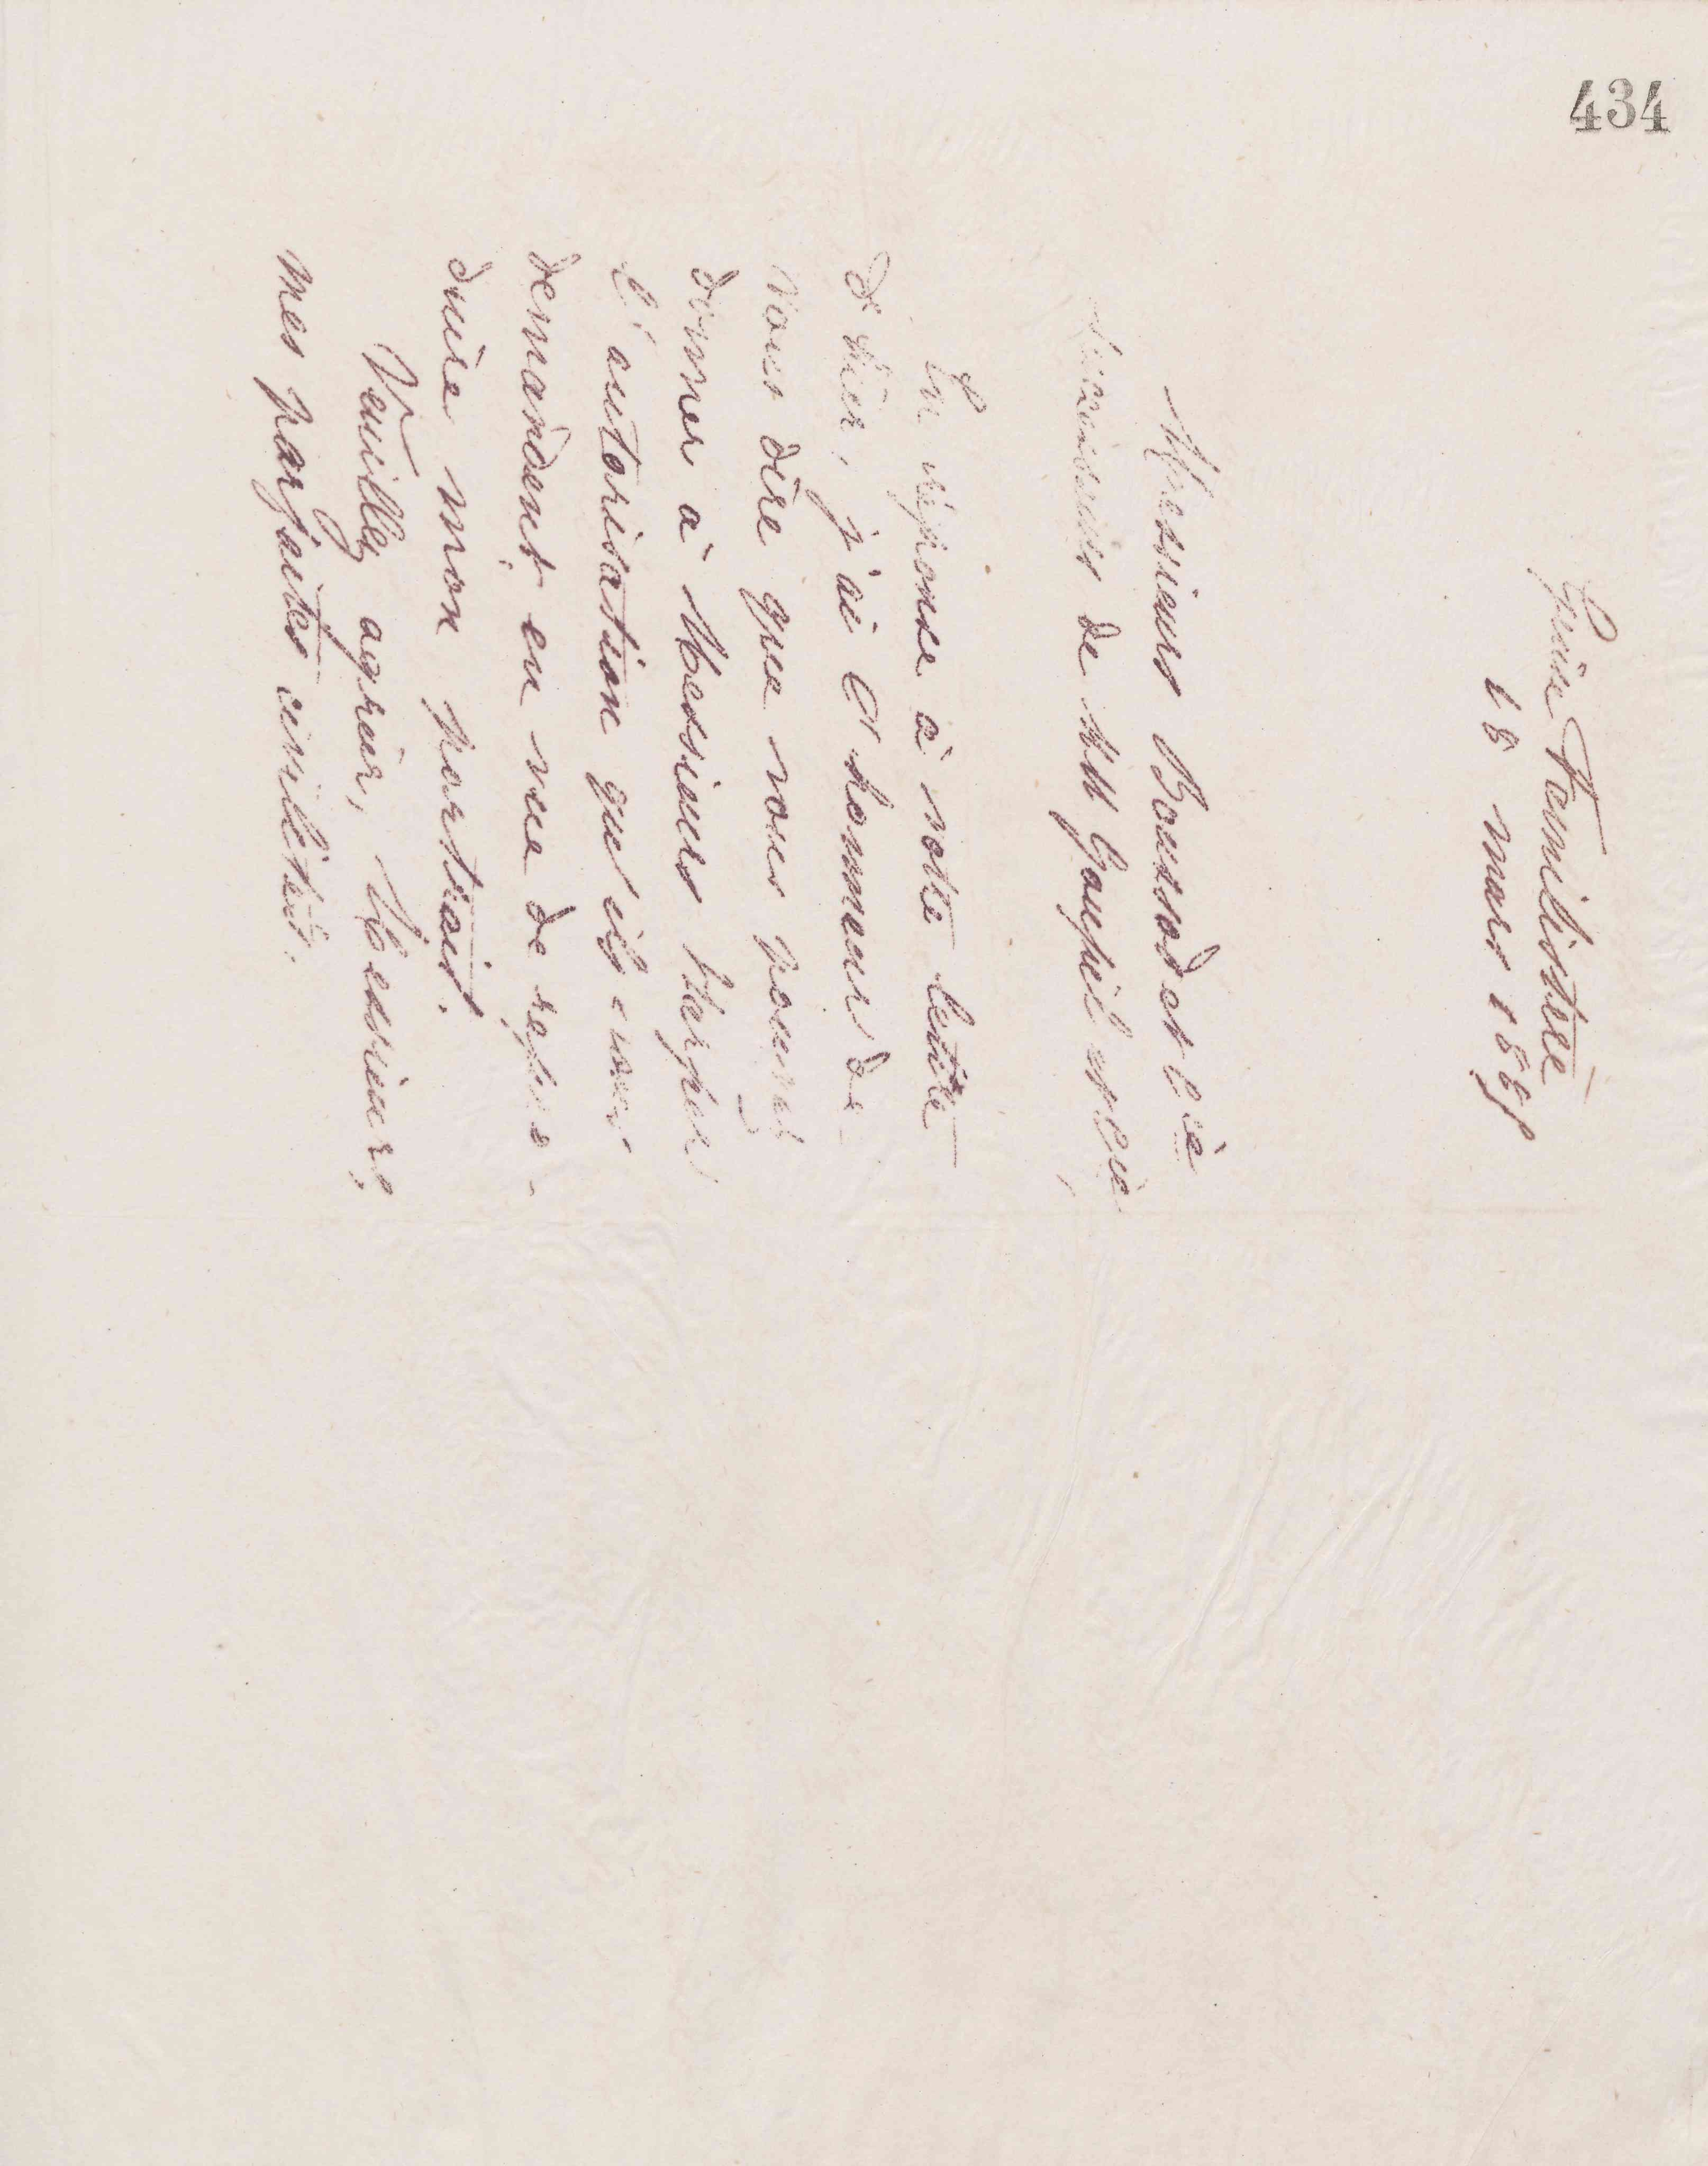 434
Guise Familistère
18 mars 1885
Messieurs Boussod et Cie
successeurs de MM Goupil et Cie,
En réponse à votre lettre
d'hier, j'ai l'honneur de
vous dire que vous pouvez
donner à Messieurs Harper
l'autorisation qu'ils vous
demandent en vue de repro-
duire mon portrait.
Veuillez agréer, Messieurs,
mes parfaites civilités.